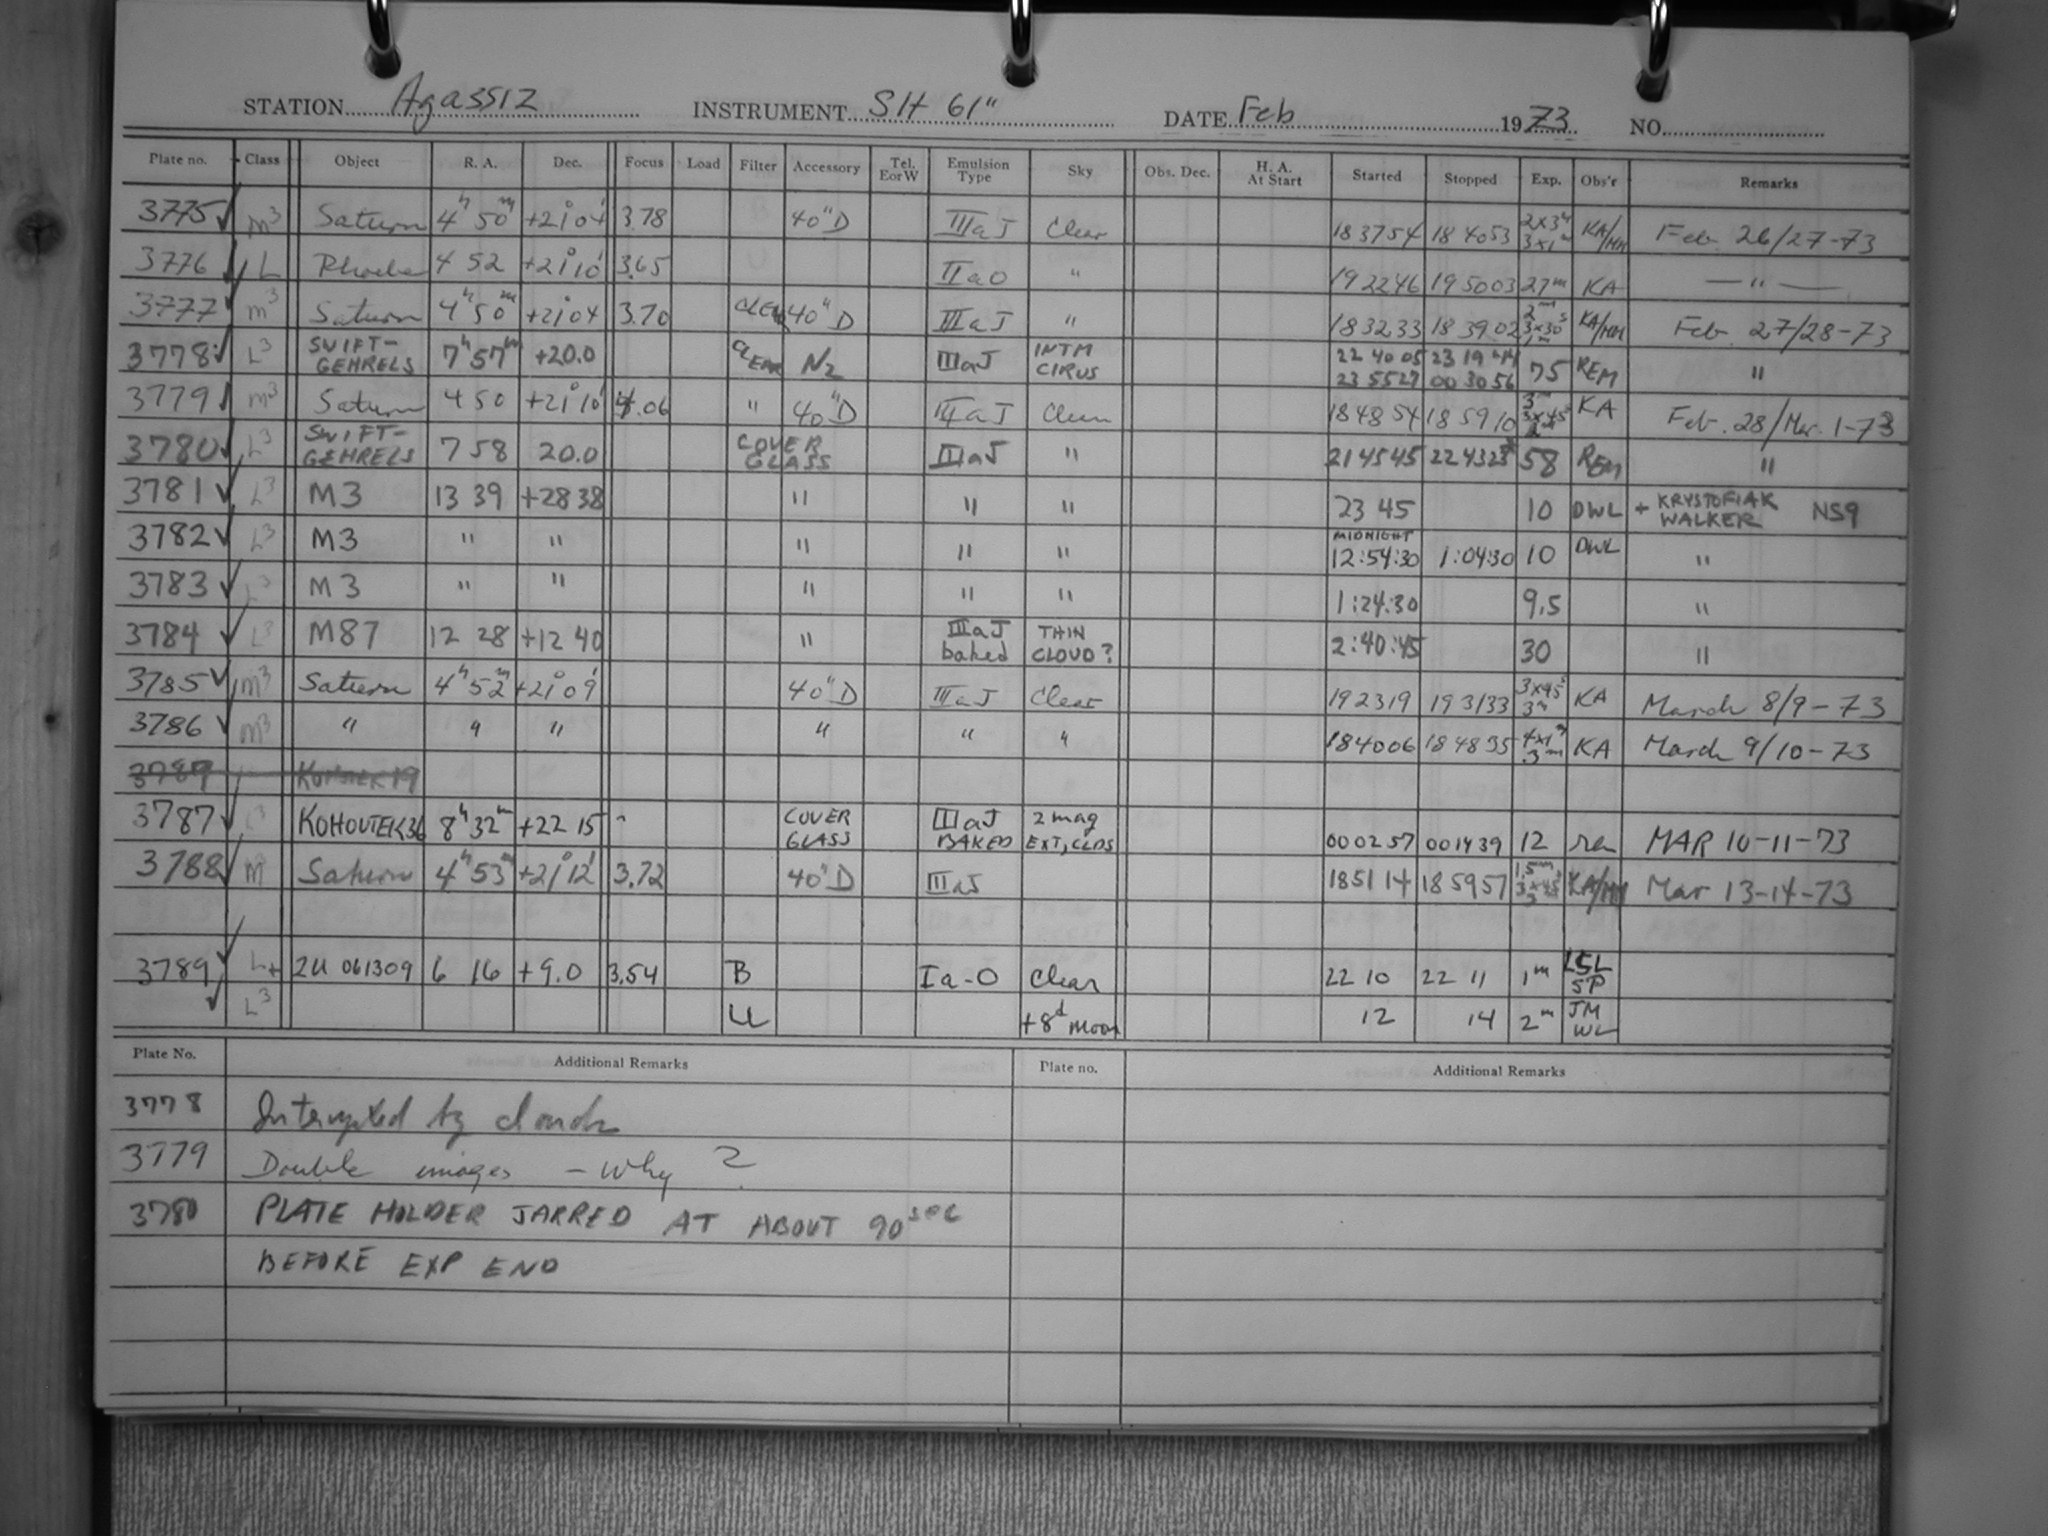 STATION Agassiz INSTRUMENT SH 61" DATE Feb 1973 NO.
Plate no. Class Object R. A. Dec. Focus Load Filter Accessory Tel. E or W Emulsion Type Sky Obs. Dec. H. A. At Start Started Stopped Exp. Obs'r Remarks
3775 M³ Saturn 4ʰ 50ᵐ +21°04' 3.78 40" D IIIaJ Clear 183754 184053 2x3ˢ 3x1ᵐ KA/MM Feb. 26/27-73
3776 L Phoebe 4 52 +21°10' 3.65 IIaO " 192246 195003 27ᵐ KA — " —
3777 M³ Saturn 4ʰ 50ᵐ +21°04 3.70 CLEAR 40" D IIIaJ " 183233 183902 2ᵐ 3x30ˢ 1ᵐ KA/MM Feb. 27/28-73
3778 L³ SWIFT-GEHRELS 7ʰ 57ᵐ +20.0 CLEAR N₂ IIIaJ INTM CIRUS 22 40 05 23 19 44 75 REM "
23 55 27 00 30 56
3779 M³ Saturn 4 50 +21°10' 4.06 " 40" D IIIaJ Clear 184854 185910 3ᵐ 3x45ˢ KA Feb. 28/Mar. 1-73
3780 L³ SWIFT-GEHRELS 7 58 20.0 COVER GLASS IIIaJ " 214545 224323 58 REM "
3781 L³ M3 13 39 +28 38 " " " 23 45 10 DWL + KRYSTOFIAK WALKER NS9
3782 L³ M3 " " " " " MIDNIGHT 12:54:30 1:04:30 10 DWL "
3783 L³ M3 " " " " " 1:24:30 9.5 "
3784 L³ M87 12 28 +12 40 " IIIaJ baked THIN CLOUD? 2:40:45 30 "
3785 M³ Saturn 4ʰ 52ᵐ +21°09' 40" D IIIaJ Clear 192319 193133 3x45ˢ 3ᵐ KA March 8/9-73
3786 M³ " " " " " " 184006 184835 4x1ᵐ 3ᵐ KA March 9/10-73
3787 L³ KOHOUTEK36 8ʰ 32ᵐ +22 15 COVER GLASS IIIaJ BAKED 2 mag EXT, CLDS 000257 001439 12 MAR 10-11-73
3788 M Saturn 4ʰ 53ᵐ +21°12' 3.72 40" D IIIaJ 185114 185957 1.5ᵐ 3x45ˢ 3 KA/MM Mar 13-14-73
3789 L+ 2U 061309 6 16 +9.0 3.54 B Ia-O Clear 22 10 22 11 1ᵐ LSL SP
L³ U +8ᵈ moon 12 14 2ᵐ JM WL
Plate No. Additional Remarks Plate no. Additional Remarks
3778 Interrupted by clouds
3779 Double images - Why ?
3780 PLATE HOLDER JARRED AT ABOUT 90 SEC
BEFORE EXP END